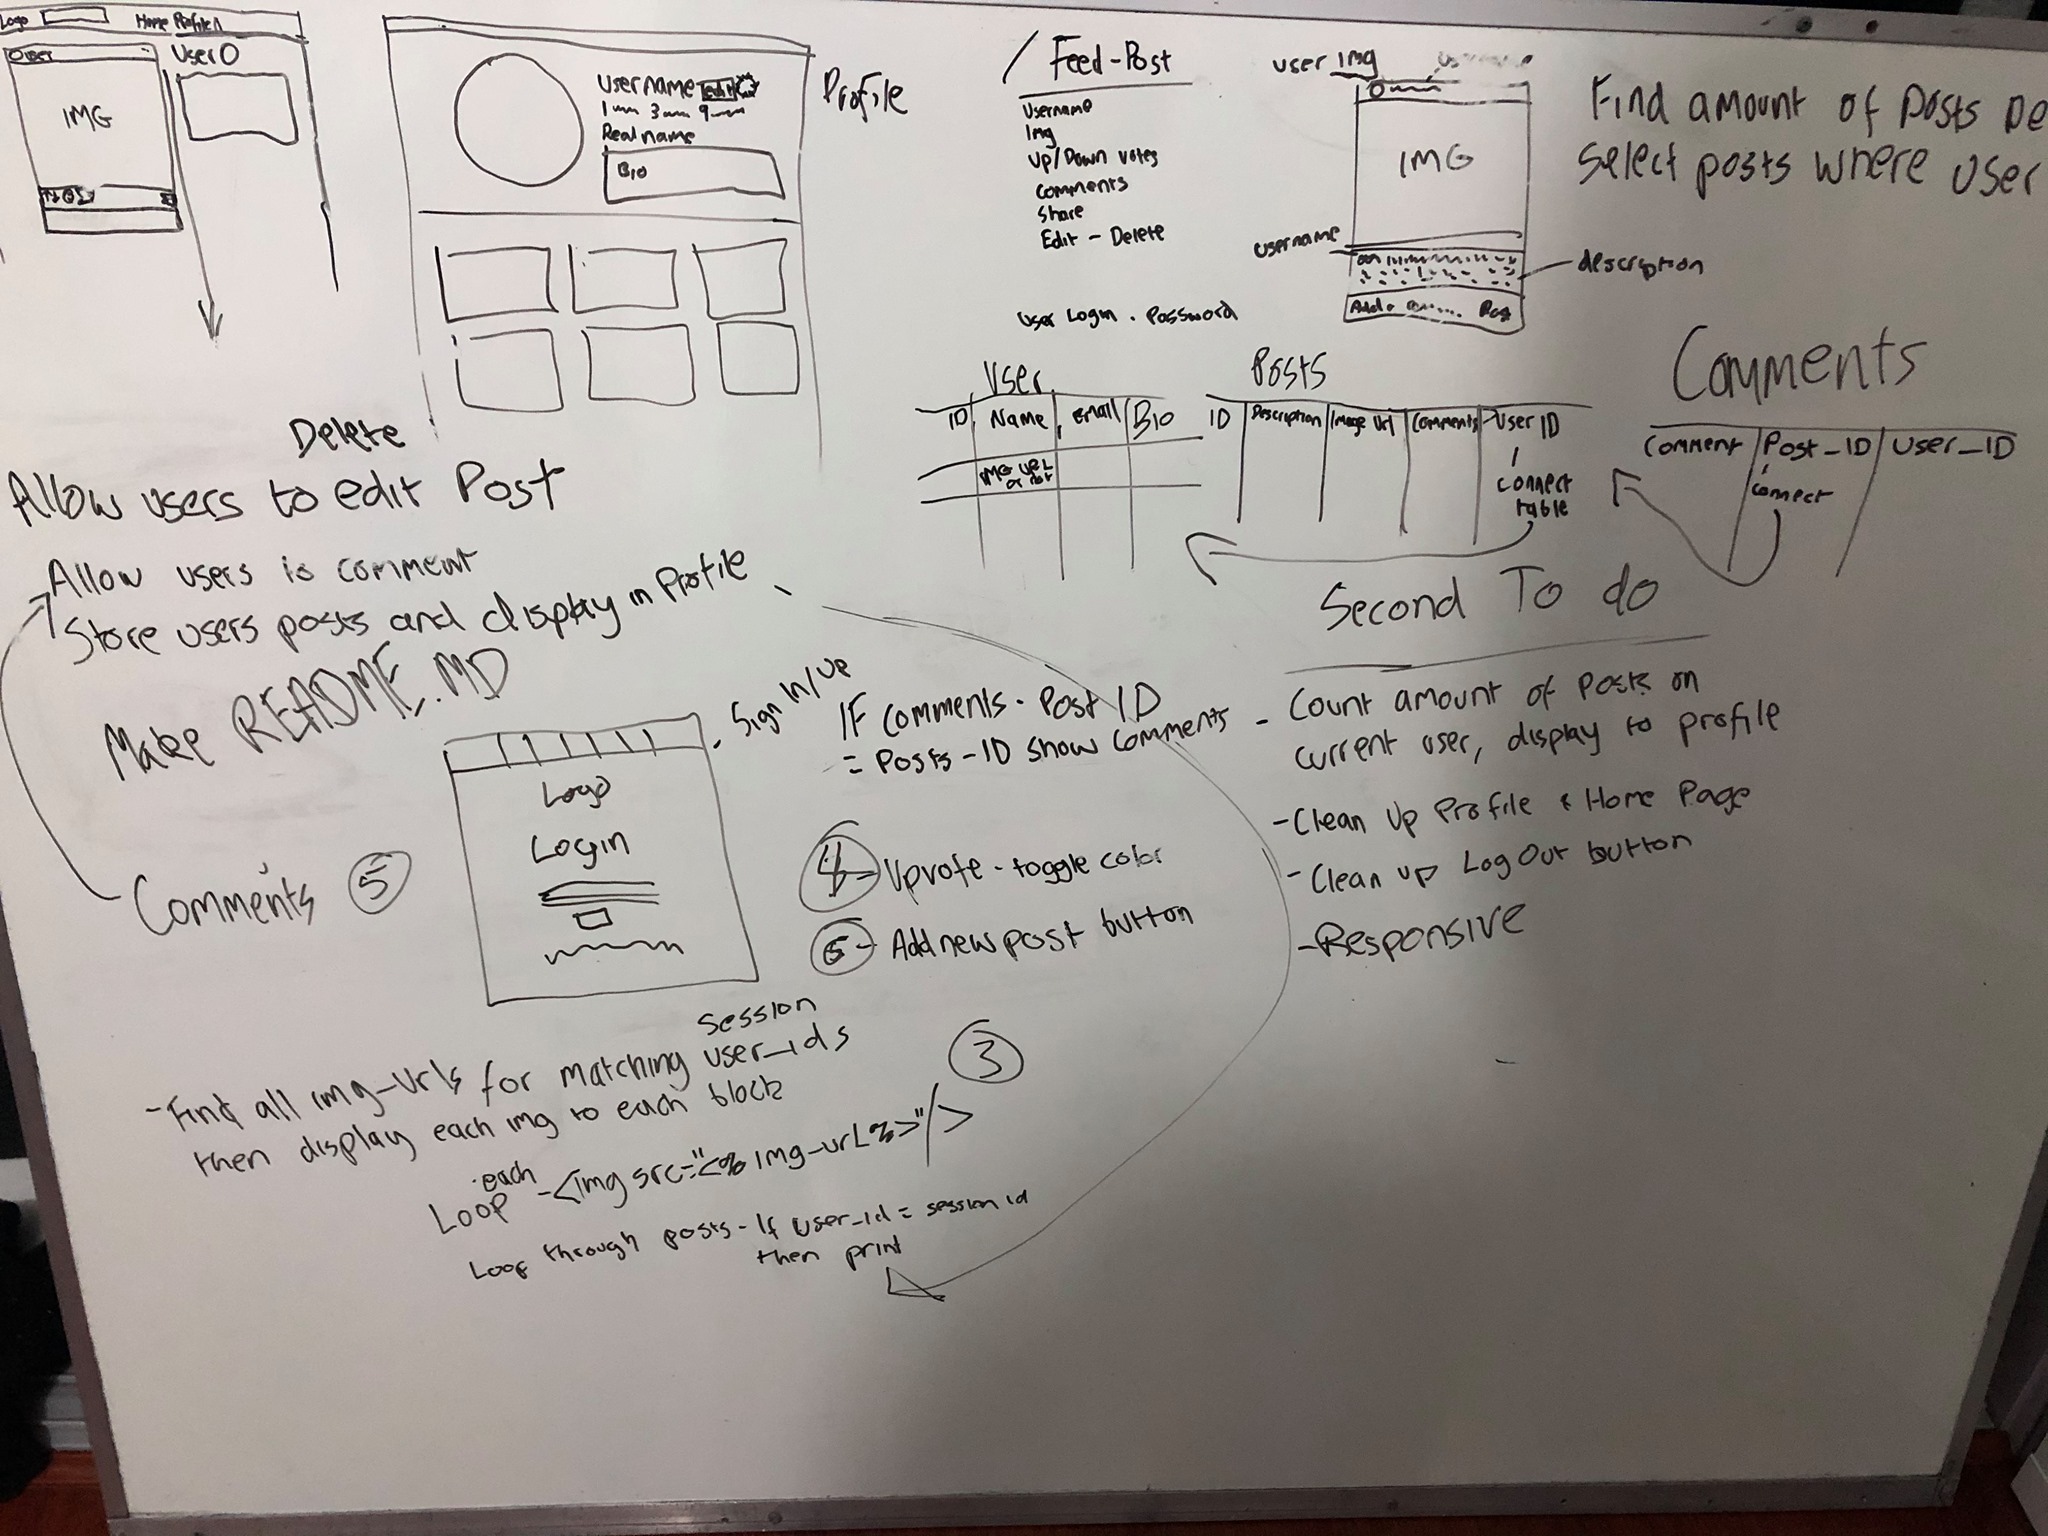 Logo
Home Profile
User
User
IMG
Username edit
Real name
Bio
Profile
/ Feed-Post
Username
Img
Up/Down votes
Comments
Share
Edit - Delete
User Login . Password
user img
IMG
username
description
Add a Post
Find amount of posts Pe
Select posts where user
User
ID Name email Bio
IMG URL
or not
Posts
ID Description Image Url Comments User ID
connect
table
Comments
Comment Post_ID User_ID
connect
Delete
Allow users to edit Post
Allow users is comment
Store users posts and display in Profile
Make README.MD
Comments 5
Sign in/up
Logo
Login
IF comments. Post ID
= Posts-ID show comments
4 - Upvote - toggle color
6 - Add new post button
Second To do
- Count amount of posts on
current user, display to profile
- Clean Up Profile & Home Page
- Clean up Log Out button
- Responsive
Session
- Find all img_urls for matching user_ids
then display each img to each block
3
.each
Loop - <img src="<% img-url %>"/>
Loop through posts - If user_id = session id
then print